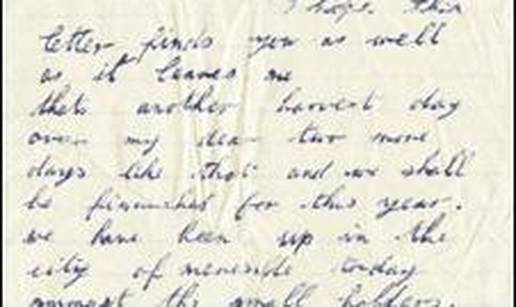 I hope this
letter finds you as well
as it leaves me
thats another harvest day
over my dear two more
days like that and we shall
be finnished for this year.
we have been up in the
city of today
amongst the small holders.